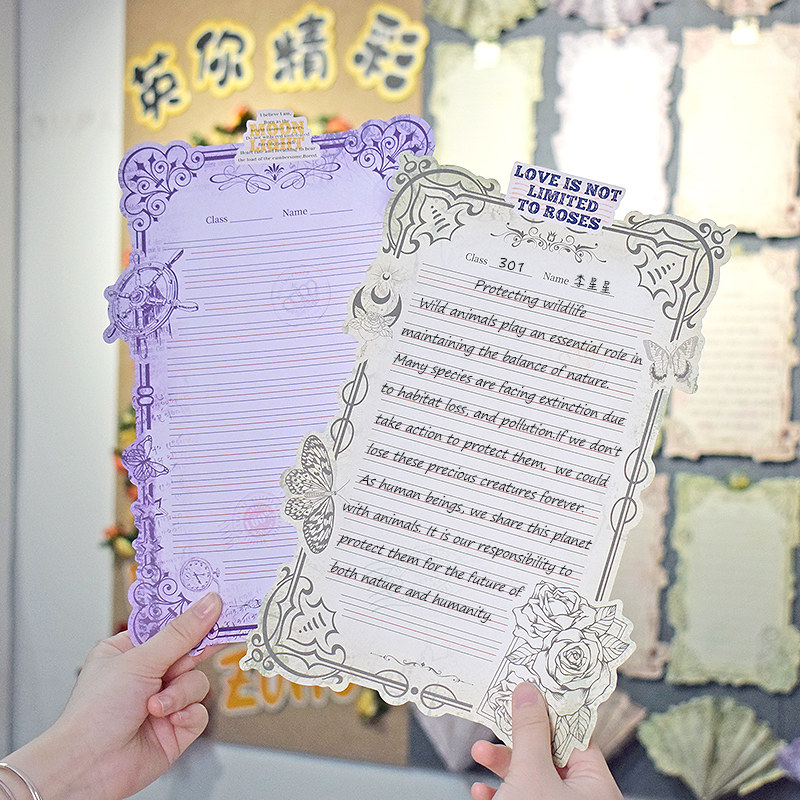 英你精彩
I believe I am.
Born as the
MOON
LIGHT
the load of the cumbersome.Bored.
Class Name
LOVE IS NOT
LIMITED
TO ROSES
Class 301 Name 李星星
Protecting wildlife
Wild animals play an essential role in
maintaining the balance of nature.
Many species are facing extinction due
to habitat loss, and pollution.If we don't
take action to protect them, we could
lose these precious creatures forever.
As human beings, we share this planet
with animals. It is our responsibility to
protect them for the future of
both nature and humanity.